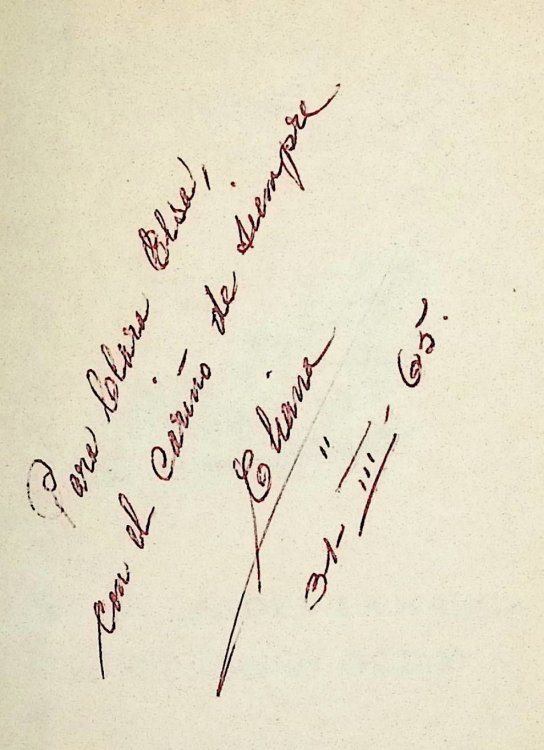 Para Clara Elsa,
con el cariño de siempre
Eliana
31-III-65.